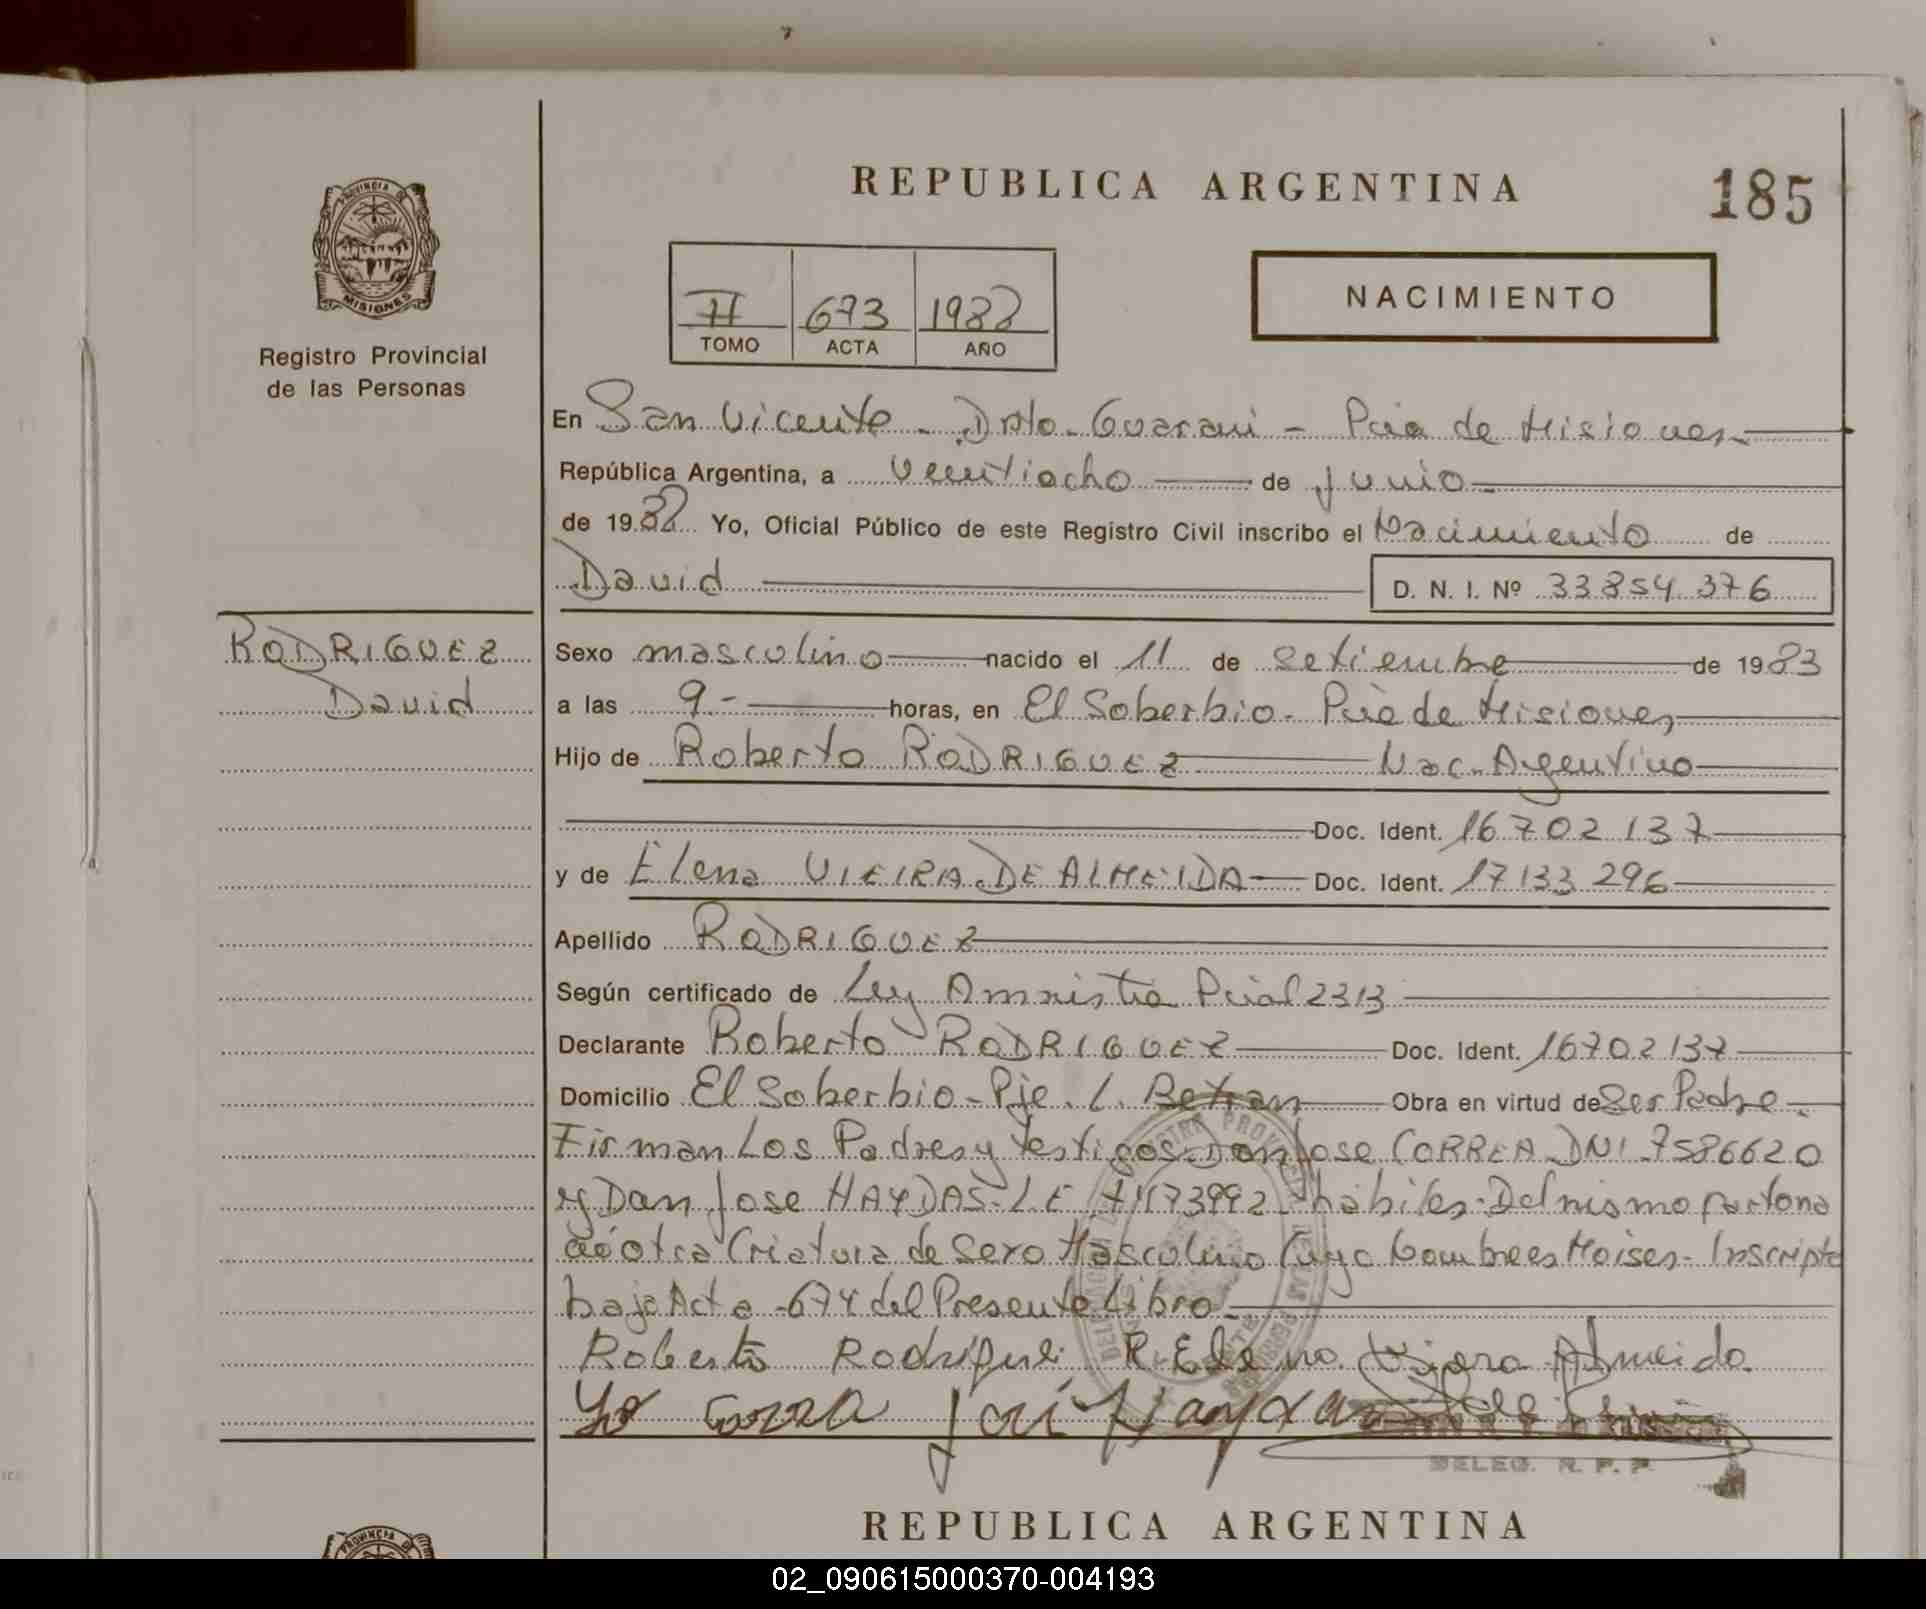 REPUBLICA ARGENTINA
185
PROVINCIA DE
MISIONES
Registro Provincial
de las Personas
II 673 1988
TOMO ACTA AÑO
NACIMIENTO
En San Vicente - Dpto - Guarani - Pcia de Misiones
República Argentina, a veintiocho de junio
de 1988 Yo, Oficial Público de este Registro Civil inscribo el Nacimiento de
David
D. N. I. Nº 33854376
RODRIGUEZ
David
Sexo masculino nacido el 11 de setiembre de 1983
a las 9 - horas, en El Soberbio - Pcia de Misiones
Hijo de Roberto RODRIGUEZ Nac. Argentino
Doc. Ident. 16702137
y de Elena VIEIRA DE ALMEIDA Doc. Ident. 17133296
Apellido RODRIGUEZ
Según certificado de Ley Amnistia Pcial 2313
Declarante Roberto RODRIGUEZ Doc. Ident. 16702137
Domicilio El Soberbio - Pje. L. Betran Obra en virtud de Ser Padre.
Firman Los Padres y testigos Don Jose CORREA DNI 7586620
y Don Jose HAYDAS - L E habiles - Del mismo parto na
ció otra Criatura de Sexo Masculino Cuyo Nombre es Moises - Inscripto
bajo Acta - 674 del Presente Libro
Roberto Rodrigue R. Elena Almeida
Correa José Haydas
DELEG. R. P. P.
REPUBLICA ARGENTINA
PROVINCIA
02_090615000370-004193